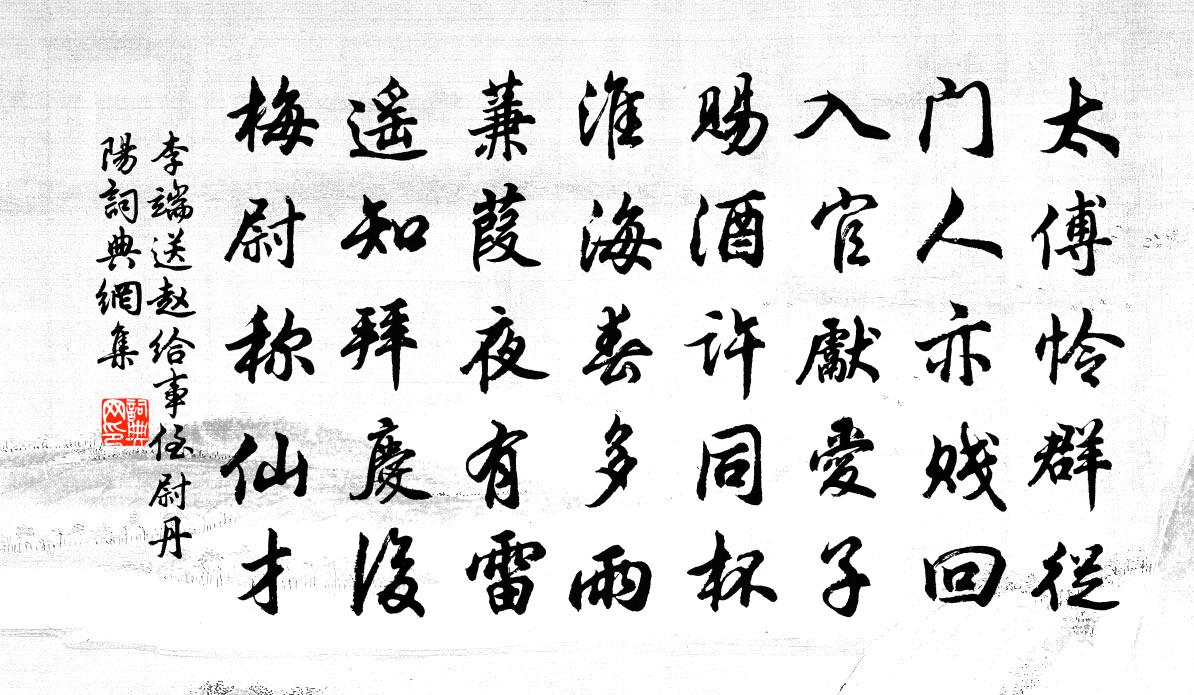 太傅怜群從
门人亦贱回
入官獻愛子
賜酒許同杯
淮海春多雨
蒹葭夜有雷
遥知拜慶後
梅尉称仙才
李端送赵給事侄尉丹
陽詞典網集
詞典
网印